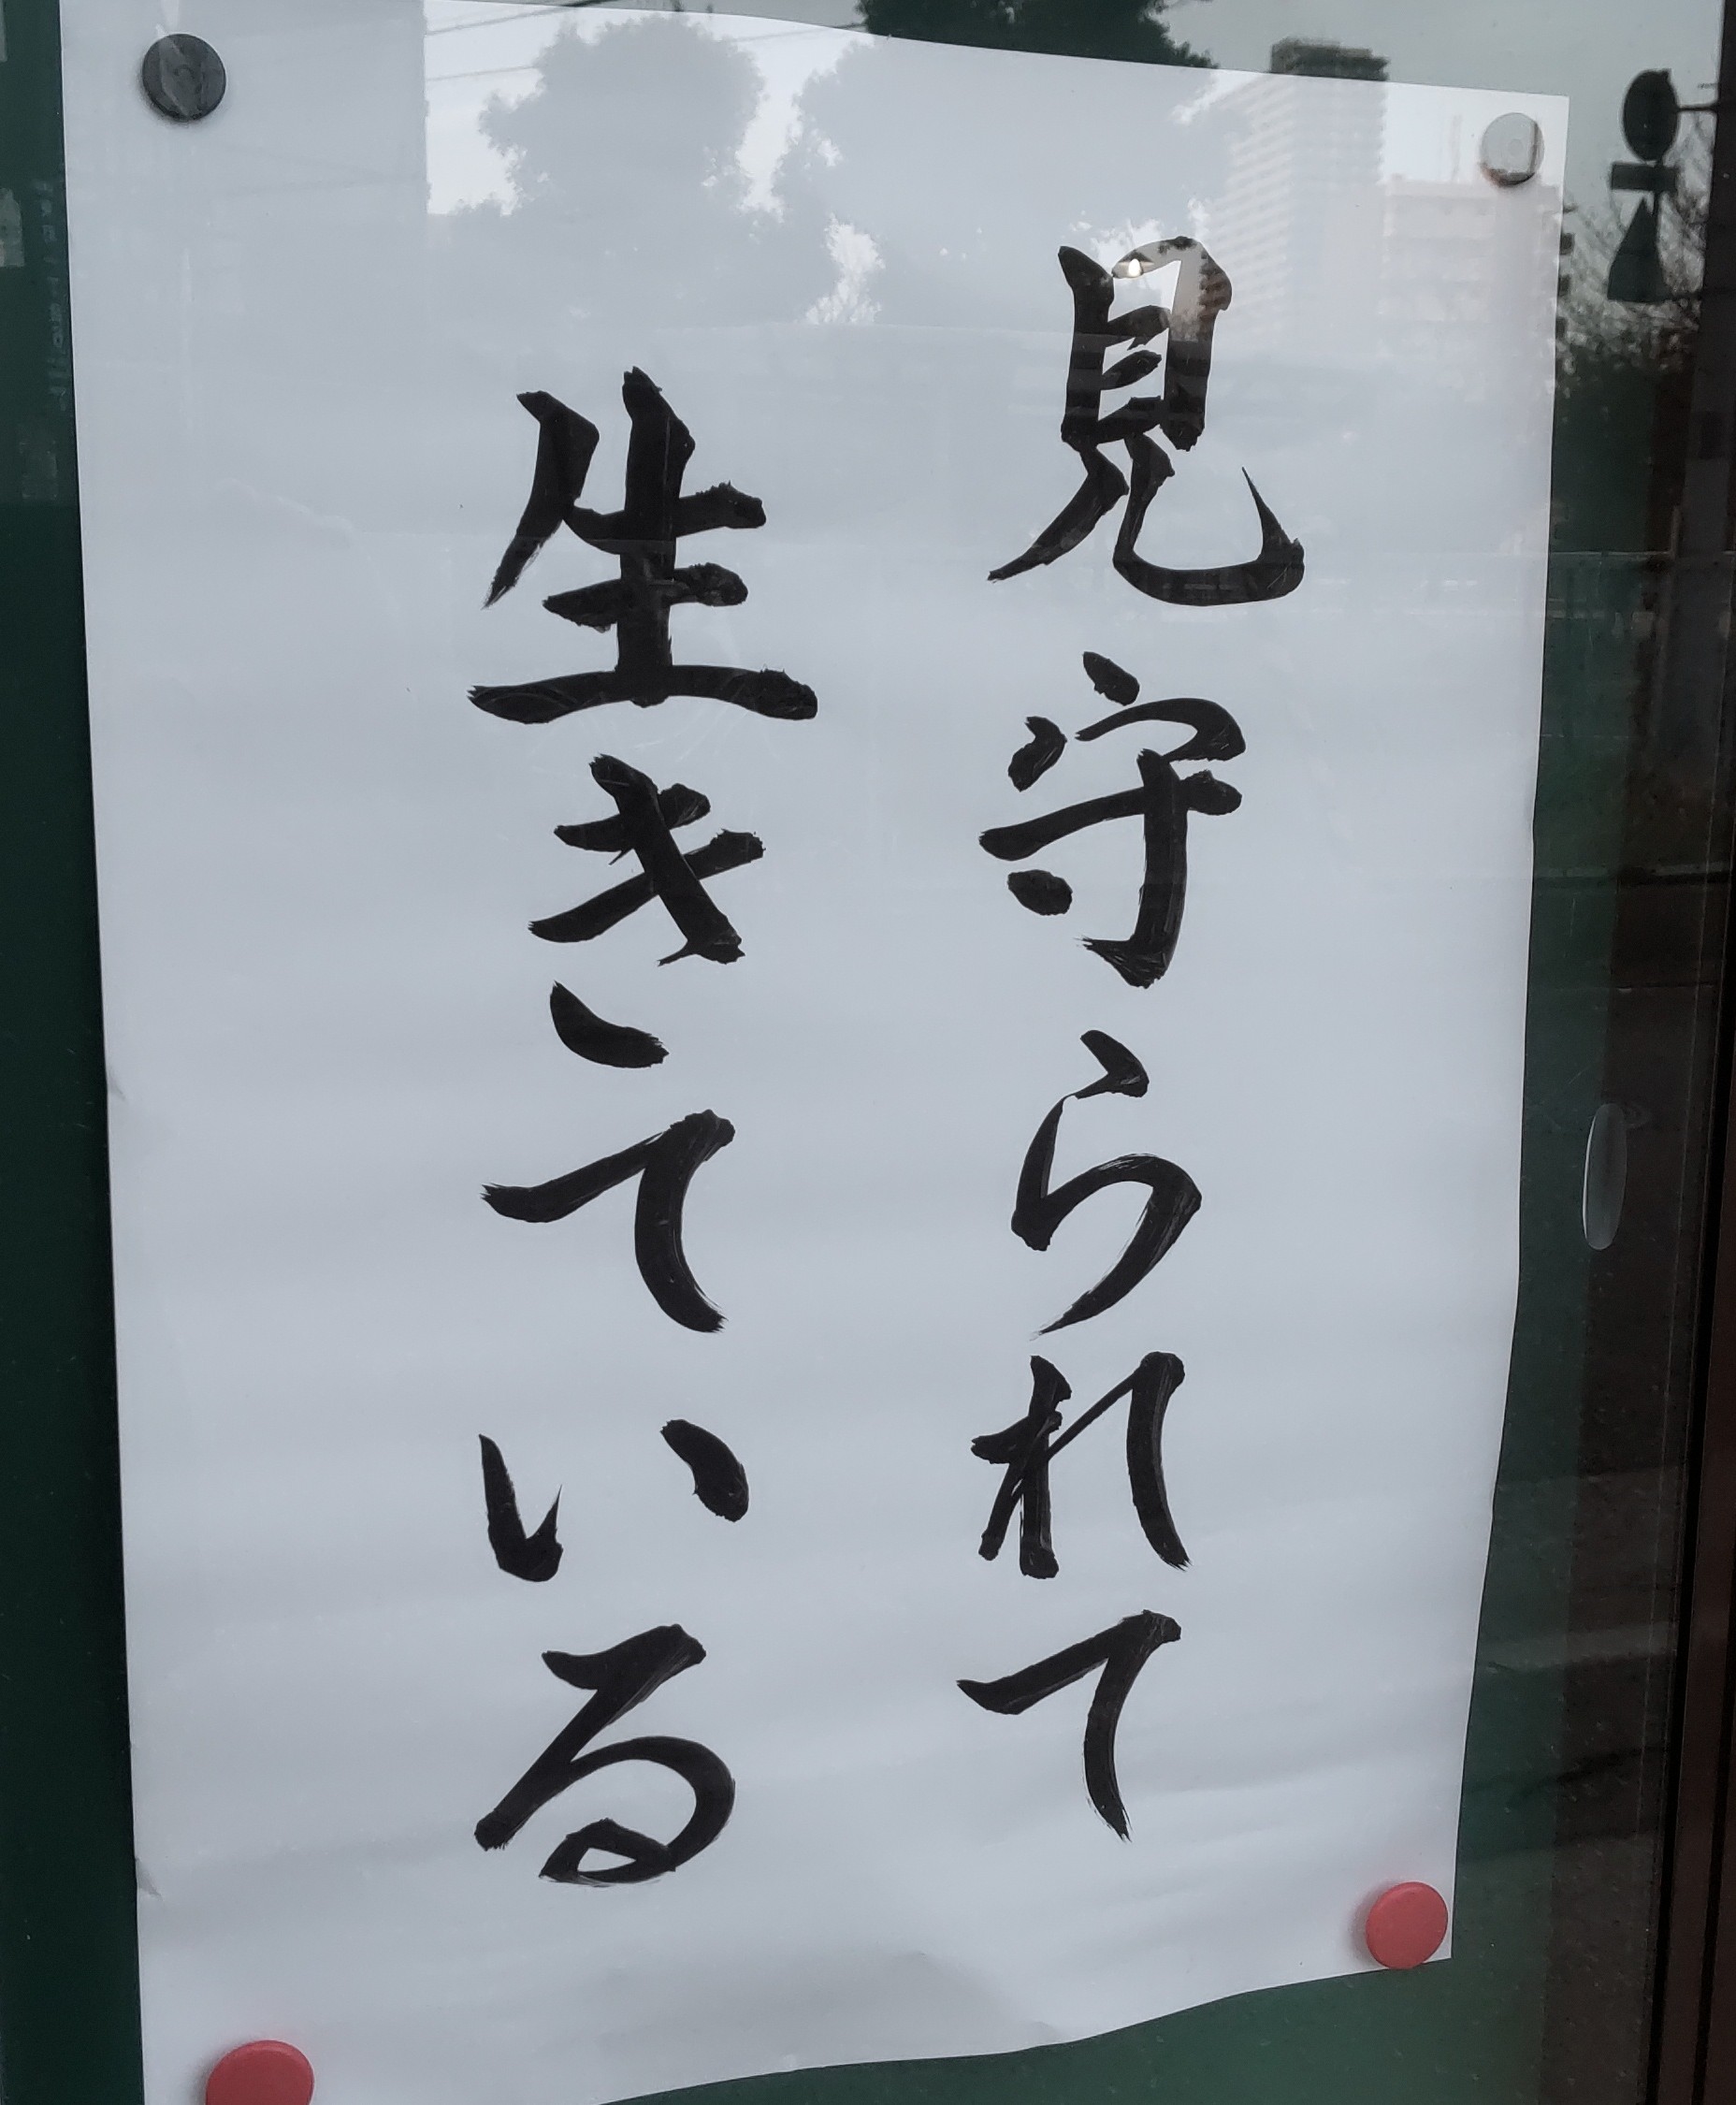 見守られて
生きている